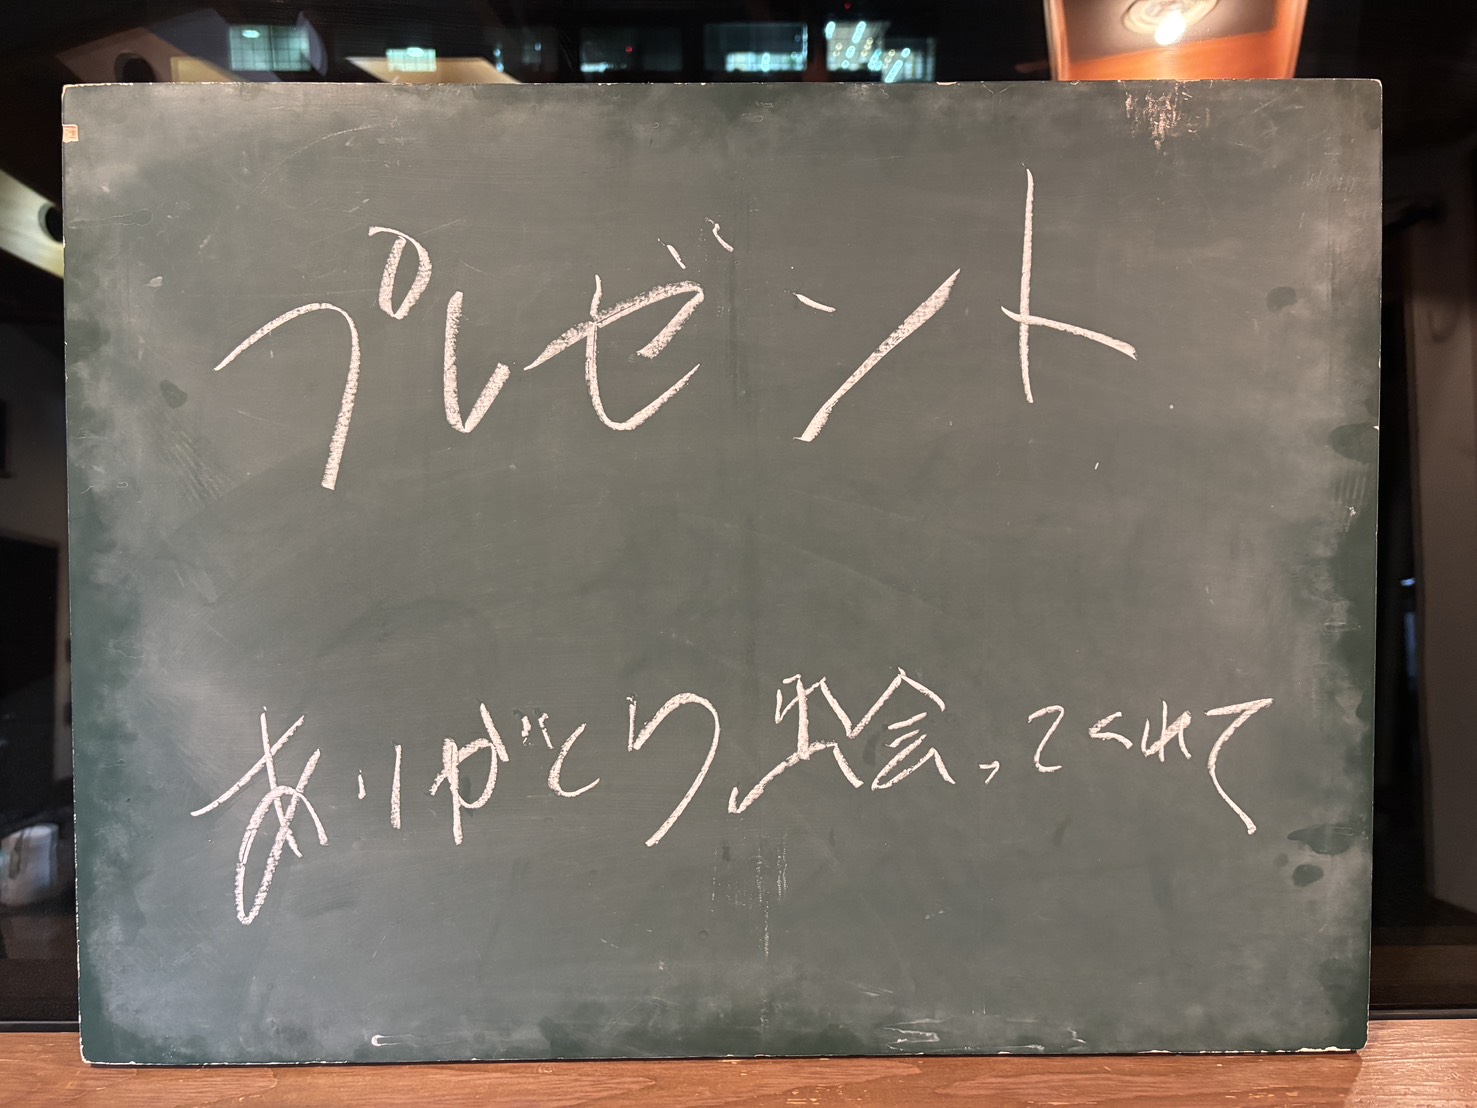 プレゼント
ありがとう、出会ってくれて